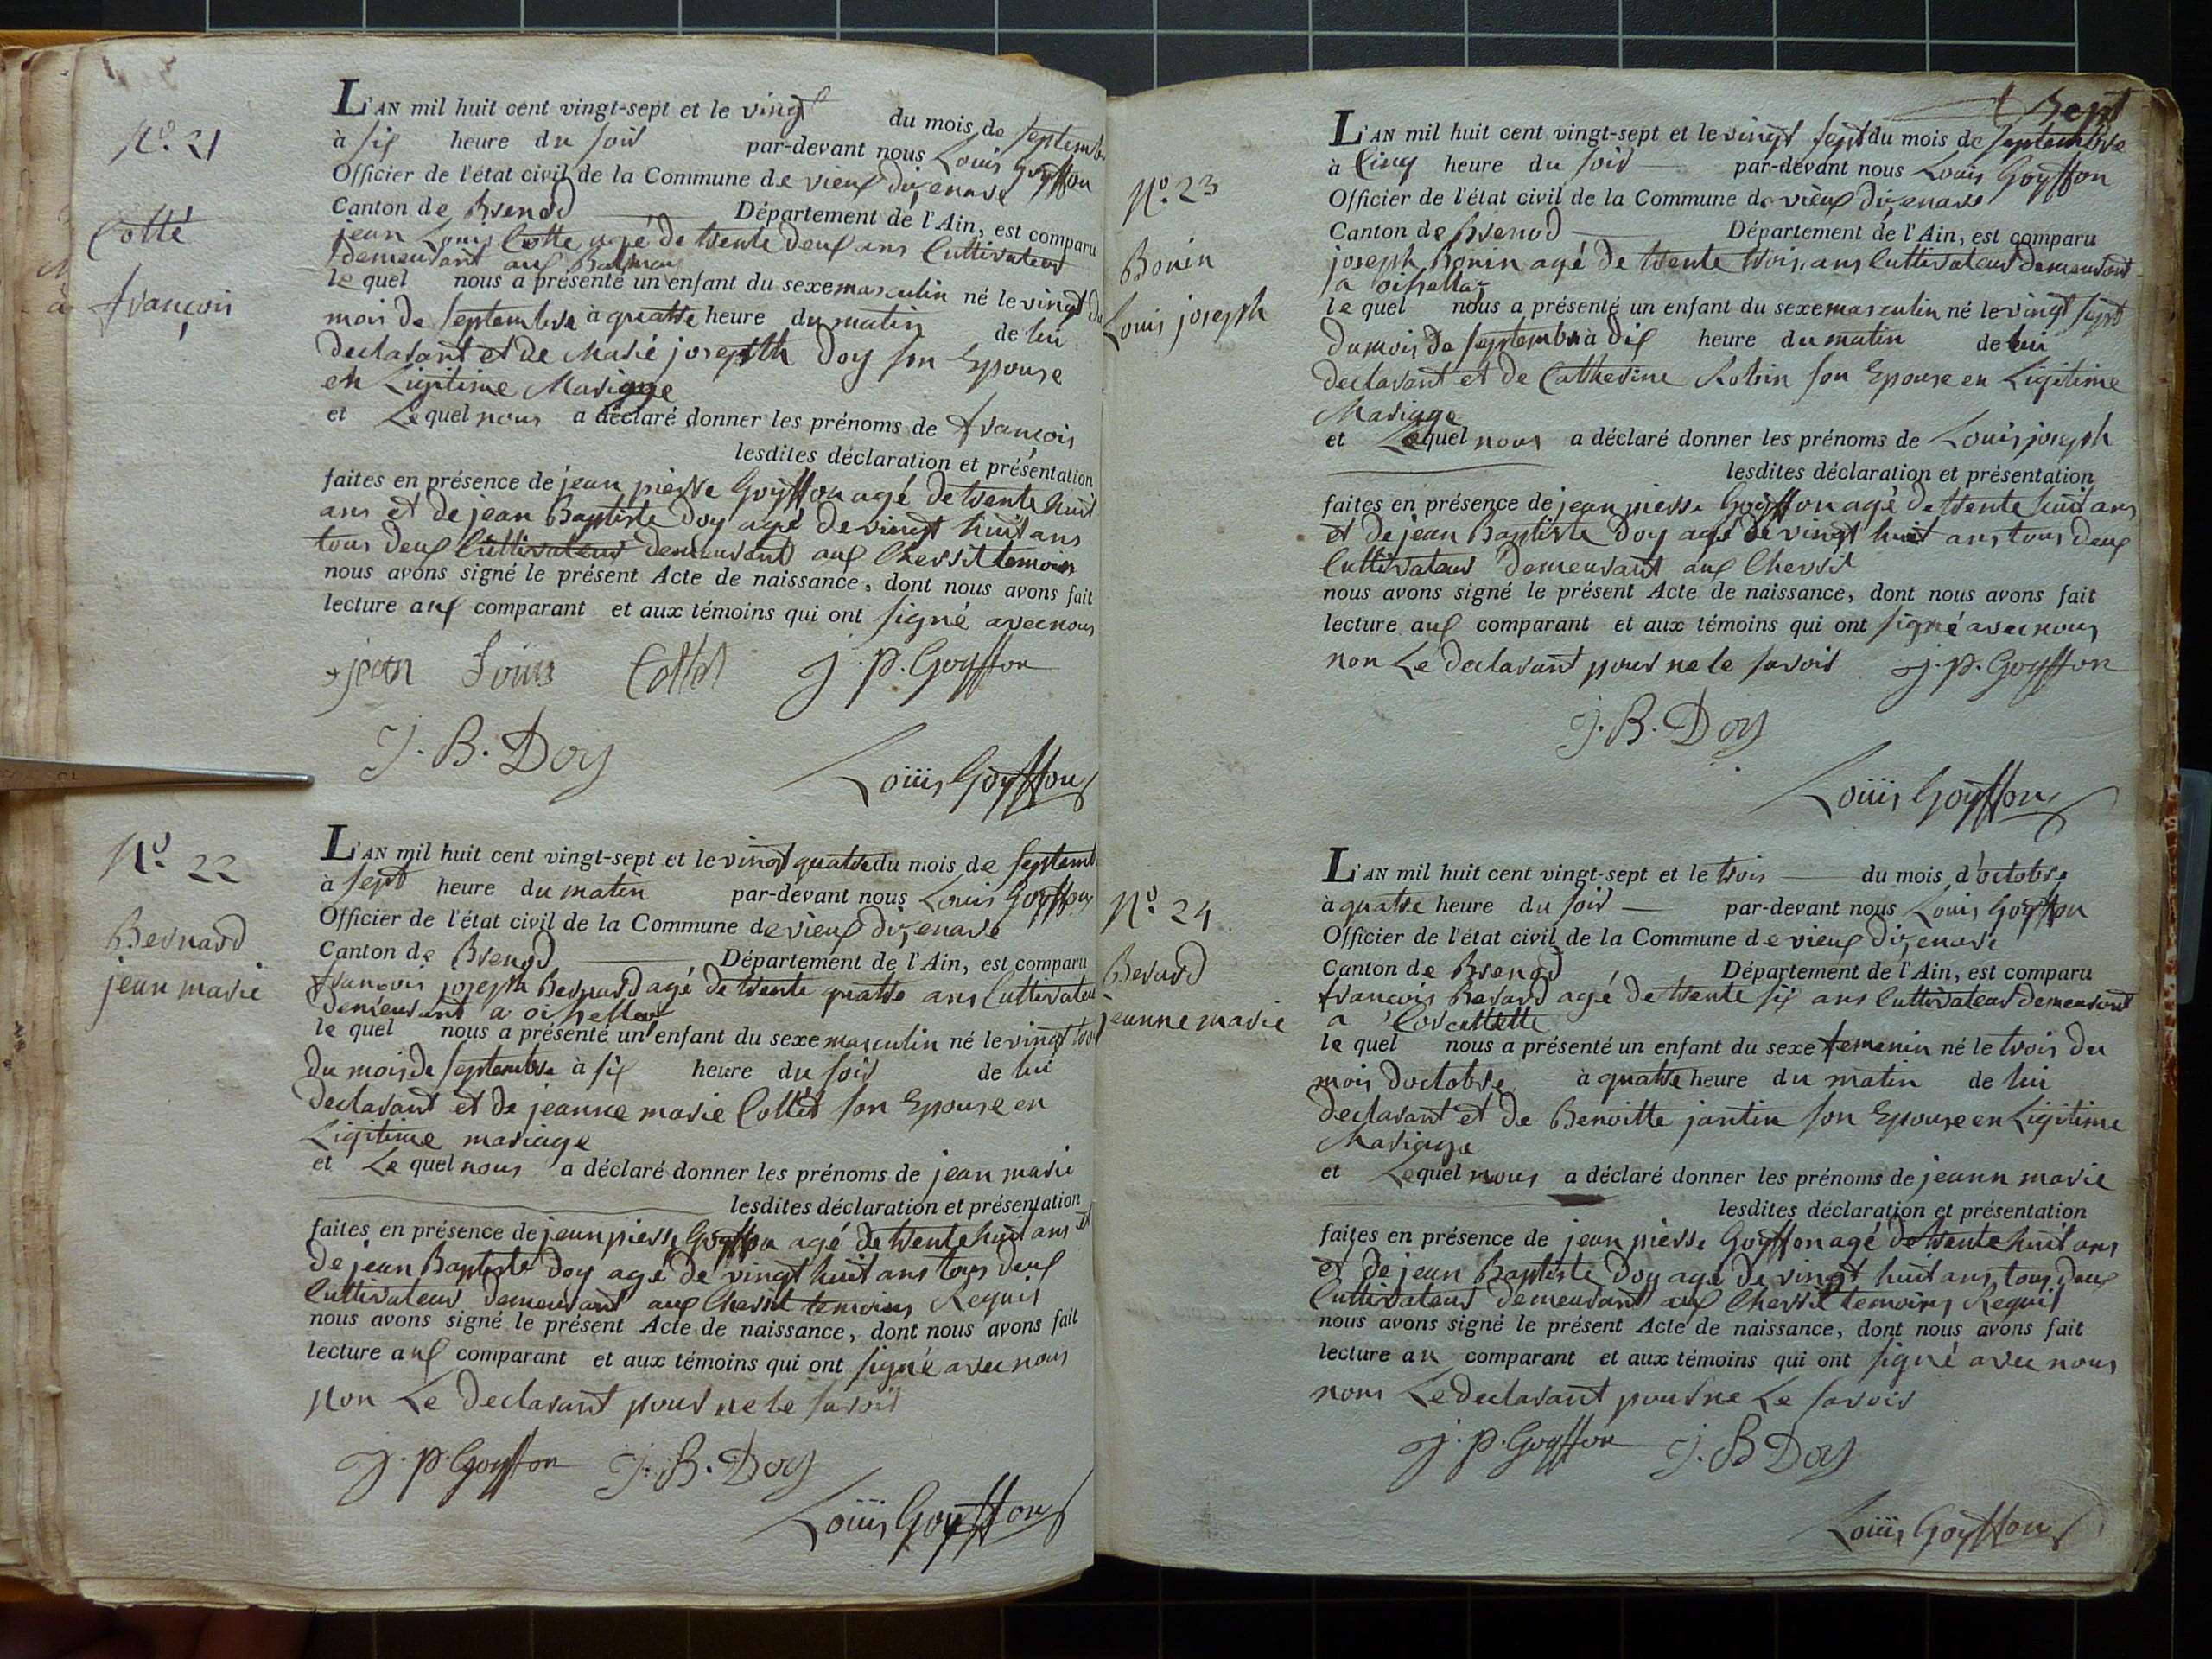 N.º 21
Cotté
françois
L'AN mil huit cent vingt-sept et le vingt du mois de septemb
à six heure du soir par-devant nous Louis Goyffon
Officier de l'état civil de la Commune de vieux dizenave
Canton de Brenod Département de l'Ain, est comparu
jean Louis Cotte agé de trente deux ans Cultivateur
demeurant aux
le quel nous a présenté un enfant du sexe masculin né le vingt du
mois de septembre à quattre heure du matin de lui
declarant et de Marie joseptth Doy son Epouse
en Ligitime Mariage
et Lequel nous a déclaré donner les prénoms de françois
lesdites déclaration et présentation
faites en présence de jean pierre Goyffon agé de trente huit
ans et de jean Baptiste Doy agé de vingt huit ans
tous deux Cultivateur demeurant aux Chevril temoin
nous avons signé le présent Acte de naissance, dont nous avons fait
lecture aux comparant et aux témoins qui ont signé avec nous
jean Louis Cottet J. P. Goyffon
J. B. Doy
Louis Goyffon
N.º 22
Bernard
jean marie
L'AN mil huit cent vingt-sept et le vingt quatre du mois de septemb
à sept heure du matin par-devant nous Louis Goyffon
Officier de l'état civil de la Commune de vieux dizenave
Canton de Brenod Département de l'Ain, est comparu
françois joseph Bernard agé de trente quatre ans Cultivateu
demeurant a oissellaz
le quel nous a présenté un enfant du sexe masculin né le vingt troi
du mois de septembre à six heure du soir de lui
declarant et de jeanne marie Collet son Epouse en
Ligitime mariage
et Le quel nous a déclaré donner les prénoms de jean marie
lesdites déclaration et présentation
faites en présence de jean pierre Goyffon agé de trente huit ans et
de jean Baptiste Doy agé de vingt huit ans tous deux
Cultivateur demeurant aux Chevril temoins Requis
nous avons signé le présent Acte de naissance, dont nous avons fait
lecture aux comparant et aux témoins qui ont signé avec nous
non Le declarant pour ne le savoir
J. P. Goyffon J. B. Doy
Louis Goyffon
Sept
N.º 23
Bonin
Louis joseph
L'AN mil huit cent vingt-sept et le vingt sept du mois de septembre
à Cinq heure du soir par-devant nous Louis Goyffon
Officier de l'état civil de la Commune de vieux dizenave
Canton de Brenod Département de l'Ain, est comparu
joseph Bonin agé de trente trois ans Cultivateur demeurant
a oissellaz
le quel nous a présenté un enfant du sexe masculin né le vingt sept
du mois de septembre à dix heure du matin de lui
declarant et de Catherine Robin son Epouse en Ligitime
Mariage
et Lequel nous a déclaré donner les prénoms de Louis joseph
lesdites déclaration et présentation
faites en présence de jean pierre Goyffon agé de trente huit ans
et de jean Baptiste Doy agé de vingt huit ans tous deux
Cultivateur demeurant aux Chevril
nous avons signé le présent Acte de naissance, dont nous avons fait
lecture aux comparant et aux témoins qui ont signé avec nous
non Le declarant pour ne le savoir J. P. Goyffon
J. B. Doy
Louis Goyffon
N.º 24
Berard
jeanne marie
L'AN mil huit cent vingt-sept et le trois du mois d'octobre
à quatre heure du soir par-devant nous Louis Goyffon
Officier de l'état civil de la Commune de vieux dizenave
Canton de Brenod Département de l'Ain, est comparu
françois Berard agé de trente six ans Cultivateur demeurant
a Corcellette
le quel nous a présenté un enfant du sexe femenin né le trois du
mois doctobre à quatre heure du matin de lui
declarant et de Benoitte jantin son Epouse en Ligitime
Mariage
et Lequel nous a déclaré donner les prénoms de jeann marie
lesdites déclaration et présentation
faites en présence de jean pierre Goyffon agé de trente huit ans
et de jean Baptiste Doy agé de vingt huit ans tous deux
Cultivateur demeurant aux Chevril temoins Requis
nous avons signé le présent Acte de naissance, dont nous avons fait
lecture au comparant et aux témoins qui ont signé avec nous
nom Le declarant pour ne Le savoir
J. P. Goyffon J. B Doy
Louis Goyffon